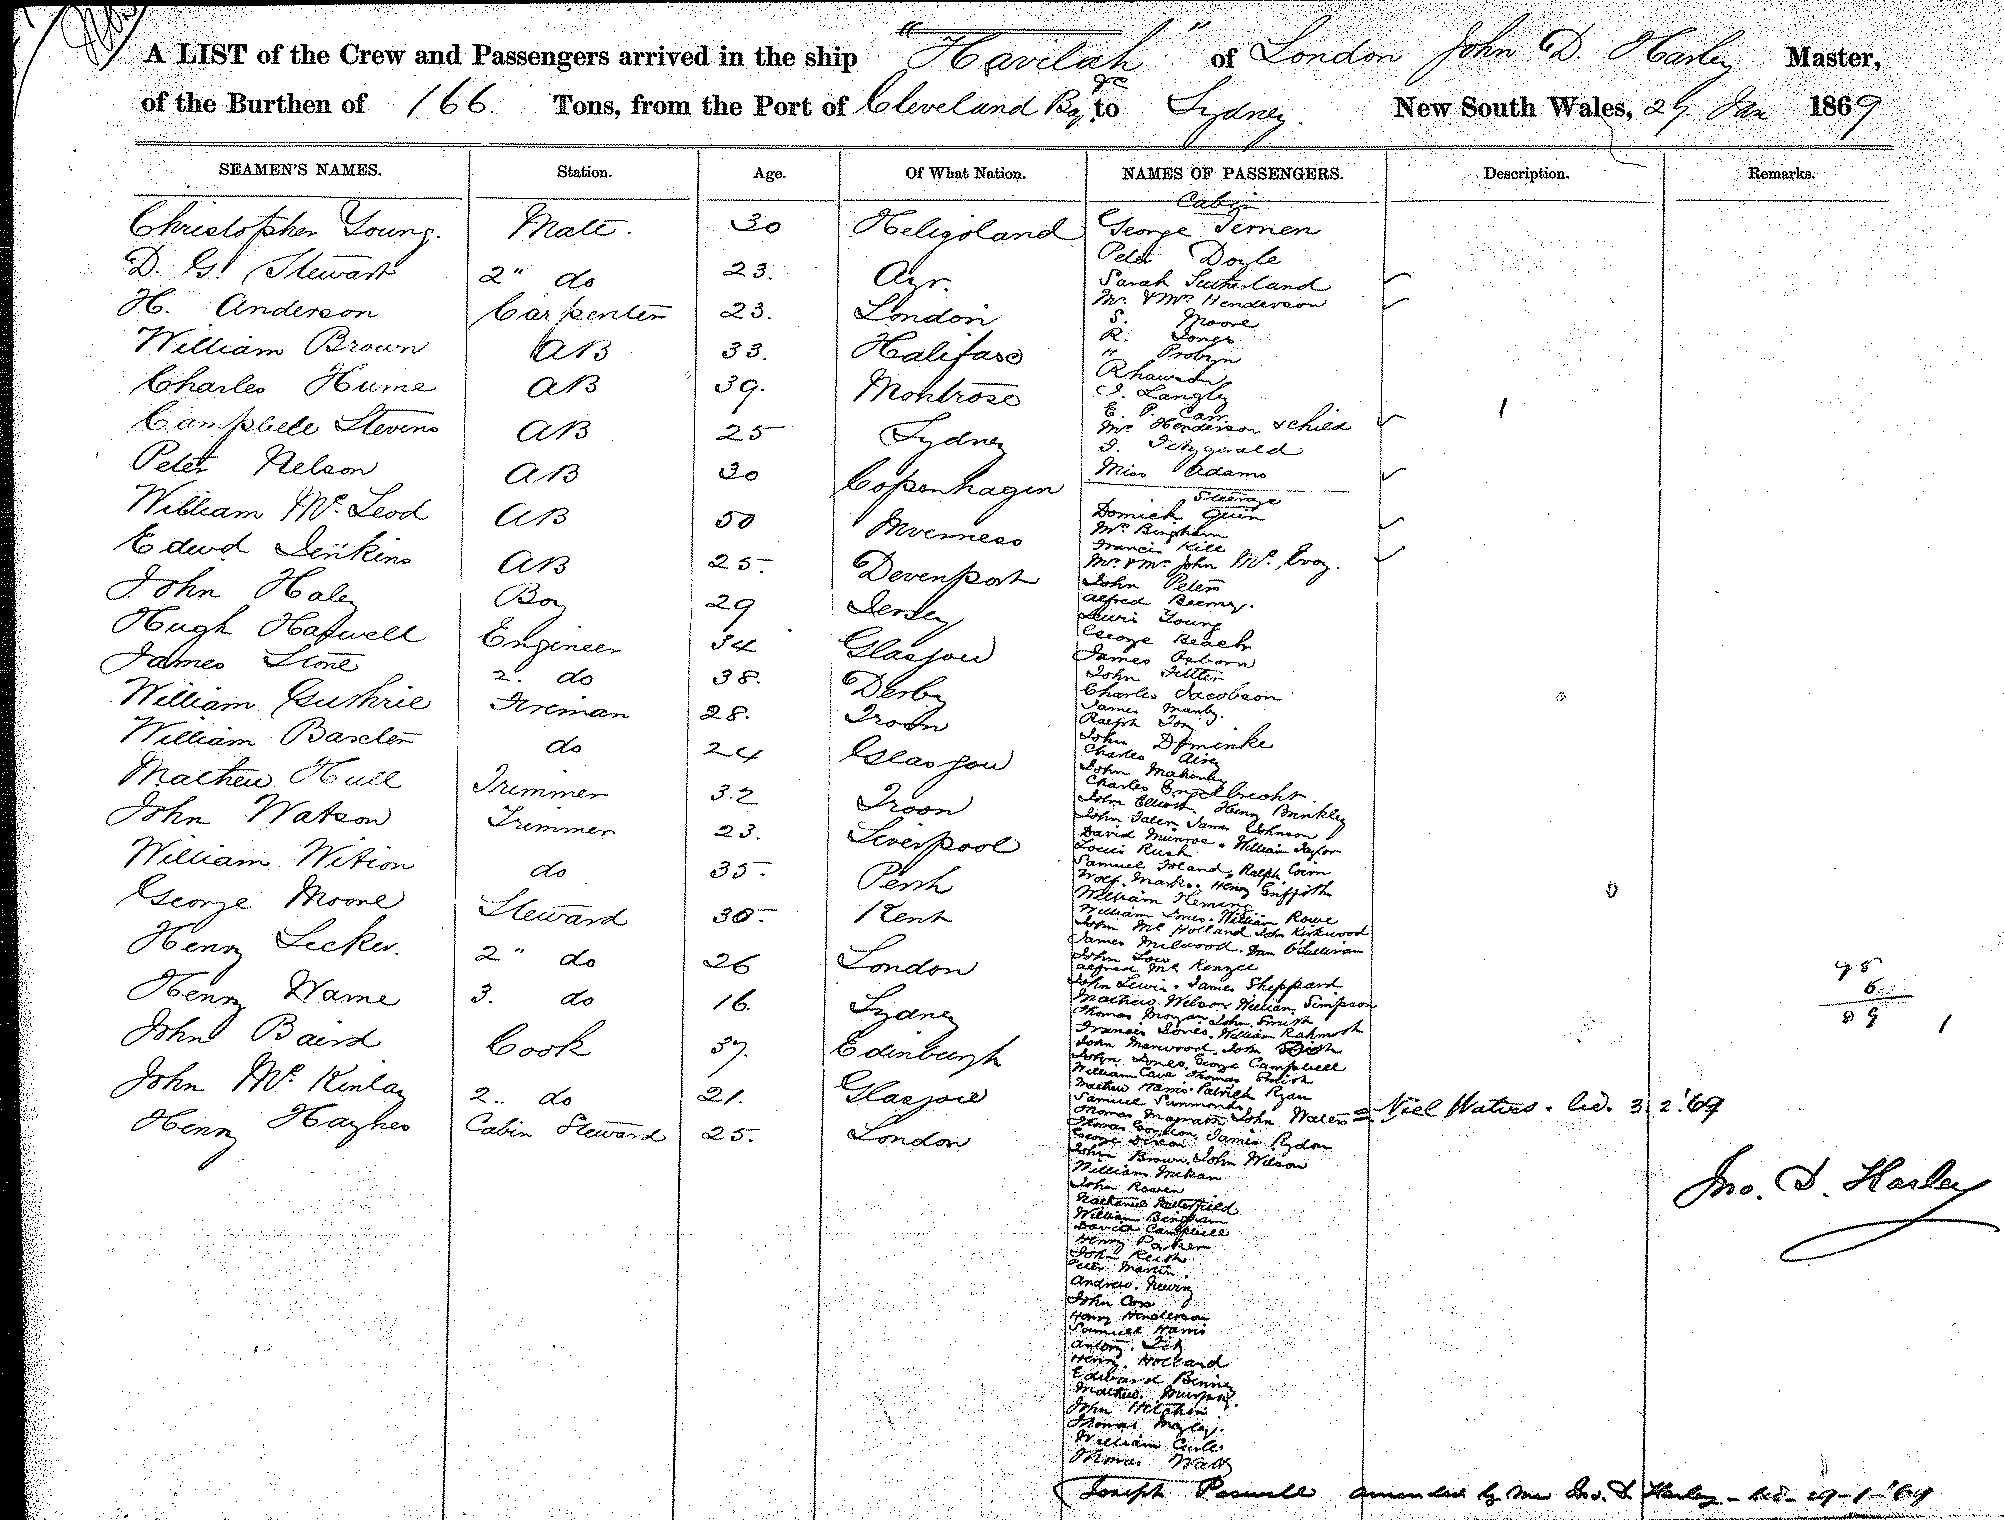 A LIST of the Crew and Passengers arrived in the ship "Havilah" of London John D. Harley Master,
of the Burthen of 166. Tons, from the Port of Cleveland Bay &c to Sydney. New South Wales, 29 Jan 1869
SEAMEN'S NAMES. Station. Age. Of What Nation. NAMES OF PASSENGERS. Description. Remarks.
Christopher Young. Mate. 30 Heligoland
D. G. Stewart 2" do 23. Ayr.
H. Anderson Carpenter 23. London
William Brown AB 33. Halifax
Charles Hume AB 39. Montrose
Campbell Stevens AB 25 Sydney
Peter Nelson AB 30 Copenhagen
William Mc Leod AB 50 Inverness
Edwd Jenkins AB 25. Devenport
John Haley Boy 29 Jersey
Hugh Hapwell Engineer 34 Glasgow
James Stone 2. do 38. Derby
William Guthrie Fireman 28. Troon
William Baxter do 24 Glasgow
Mathew Hull Trimmer 32 Troon
John Watson Trimmer 23. Liverpool
William Wition do 35. Perth
George Moore Steward 30. Kent
Henry Lecker. 2" do 26 London
Henry Warne 3. do 16. Sydney
John Baird Cook 37. Edinburgh
John Mc Kinlay 2.. do 21. Glasgow
Henry Haynes Cabin Steward 25. London
Cabin
George Temen
Peter Doyle
Sarah Sutherland
Mr. & Mrs Henderson
S. Moore
R. Jones
" Probyn
Rhawson
J. Langley
E. P. Carr
Mrs Henderson & child
J. Fitzgerald
Miss Adams
Steerage
Dominick Guin
Mrs Bingham
Francis Kill
Mr. & Mrs John Mc Evoy.
John Peters
Alfred
Lewis Young
George Beach
James Osborn
John
Charles Jacobson
James Manly.
Ralph Toy
John Dominke
Charles Airey
John
Charles Engelbrecht
John Elliott. Henry Brinkley
John James Johnson
David Munroe. William Taylor
Louis Rush
Samuel Ireland. Ralph
Wolf Marks. Henry Griffith
William Fleming
William Jones. William Rowe
John Mc Holland John Kirkwood
James Milwood. Dan O'Sullivan
John Low
Alfred Mc Kenzie
John Lewis. James Sheppard
Mathew Wilson William Simpson
Thomas Morgan John Smith
Francis Jones. William
John Marwood. John
John Jones. George Campbell
William Cave Thomas Smith
Mathew Harris. Patrick Ryan
Samuel Simmonds
Thomas Magrath John Waters = Niel Waters. lic. 3 2.'69
Thomas Gordon. James Rydon
George Dixon
John Brown. John Wilson
William
John Rowen
Nathaniel Butterfield
William Bingham
David Campbell
Henry
John Keith
Peter Martin
Andrew
John Cox
Henry Henderson
Samuel Harris
Antony
Henry Holland
Edward
Mathew Murphy.
John
Thomas
William
Thomas Watts
Joseph Poswell amended by me Jno. D. Harley - 29-1-'69
Jno. D. Harley